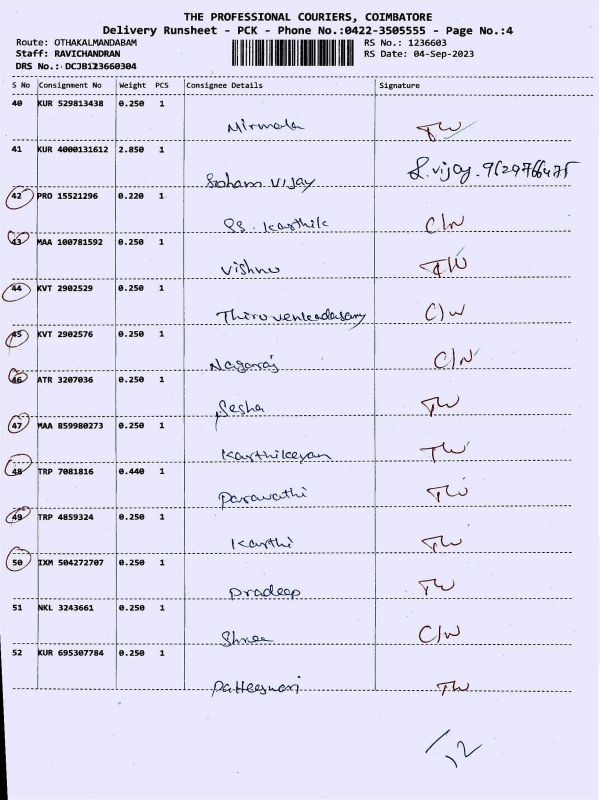 THE PROFESSIONAL COURIERS, COIMBATORE
Delivery Runsheet - PCK - Phone No.:0422-3505555 - Page No.:4
Route: OTHAKALMANDABAM RS No.: 1236603
Staff: RAVICHANDRAN RS Date: 04-Sep-2023
DRS No.: DCJB123660304
S No Consignment No Weight PCS Consignee Details Signature
40 KUR 529813438 0.250 1
Nirmala TW
41 KUR 4000131612 2.850 1
Soham Vijay S.vijay.9629766475
42 PRO 15521296 0.220 1
SS. Karthik C/W
43 MAA 100781592 0.250 1
Vishnu TW
44 KVT 2902529 0.250 1
Thiruvenkadasamy C/W
45 KVT 2902576 0.250 1
Nagaraj C/W
46 ATR 3207036 0.250 1
Sesha TW
47 MAA 859980273 0.250 1
Karthikeyan TW
48 TRP 7081816 0.440 1
Paravathi TW
49 TRP 4859324 0.250 1
Karthi TW
50 IXM 504272707 0.250 1
Pradeep TW
51 NKL 3243661 0.250 1
Shree C/W
52 KUR 695307784 0.250 1
Patteeswari TW
12